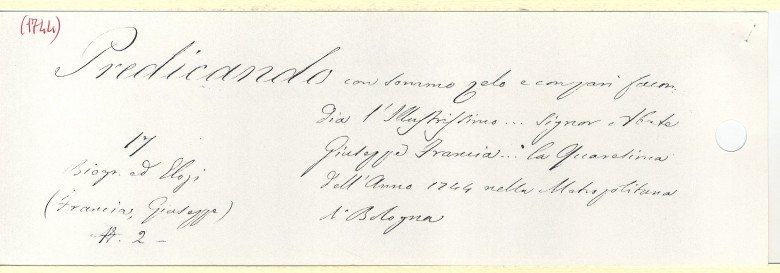 (1744)
Predicando con sommo zelo e con pari facon:
dia l'Illustrissimo... Signor Abate
Giuseppe Francia... la Quaresima
dell'Anno 1744 nella Metropolitana
di Bologna
17
Biogr. ed Elogi
(Francia, Giuseppe)
N. 2 -